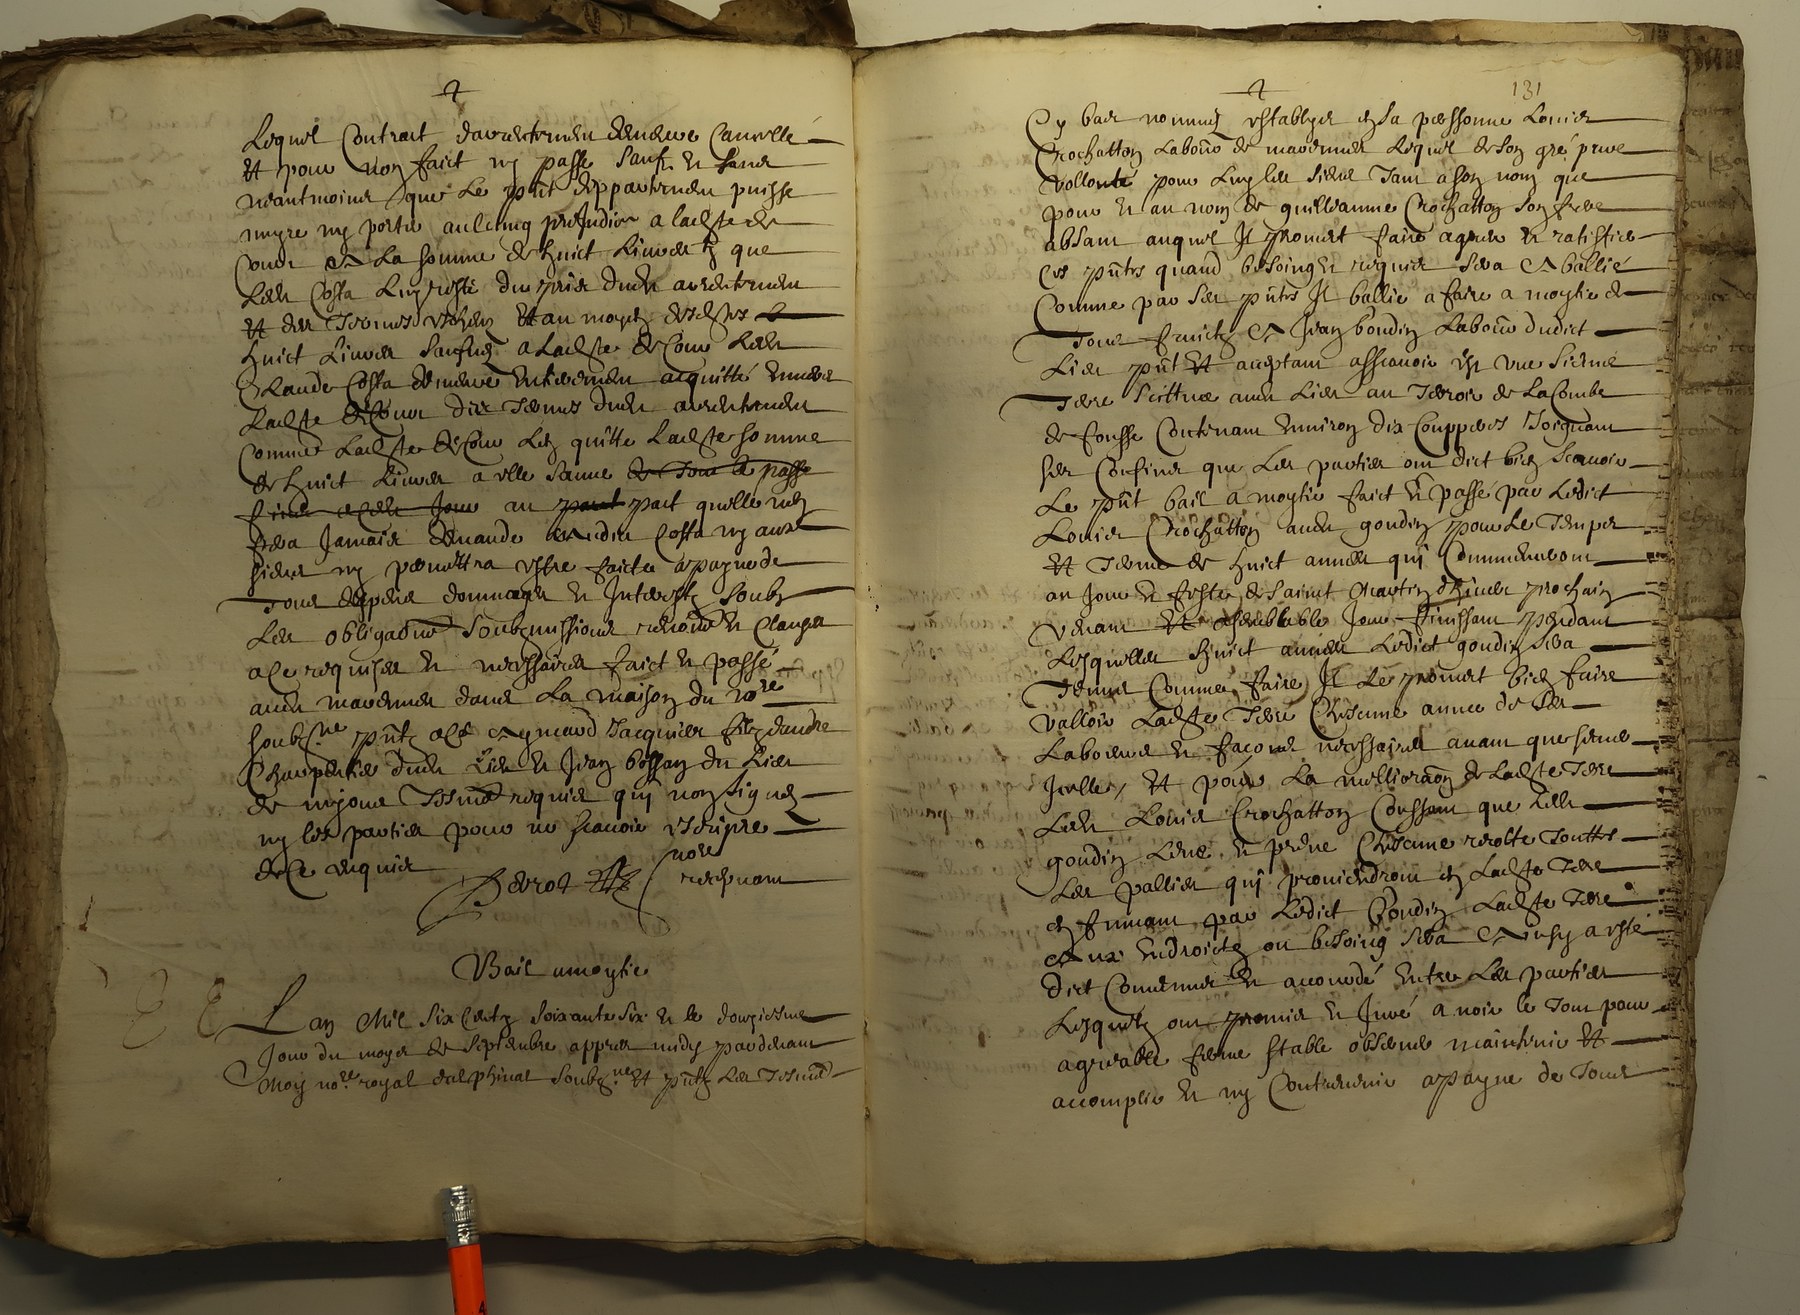 Lequel Contract darrentement demeure Cancellé
Et pour non faict ny passé sauf et sans
neantmoins que le pnt despartement puisse
nuyre ny porter aulcung preJudice a ladte de
Cour la somme de huict Livres que
Led Costa Luy reste du prix dud arrentement
Et des Termes escheus Et au moyen desdtes
huict Livres a Ladte de Cour Led
Claude Costa demeure entierement acquitté envers
Ladte de Cour des Termes dud arrentement
Comme Ladte de Cour Len quitte Ladte somme
de huict Livres a elle sauve de Tout le passé
Jour au part quelle nen
fera Jamais demande audict Costa ny aux
siens ny permettra estre faicte a payne de
Tous despens dommages et Interestz soubz
Les obligaons soubzmissions renoons et Clauses
a ce requises et necessaires faict et passé
aud marennes dans La maison du nore
soubzne pntz a ce Aymard Jacquier filz dandre
Charpentier dud Lieu et Jean bossan du Lieu
de myons Tesmoings requis qui nont signé
ny les parties pour ne scavoir escripre
de ce enquis
Perrot nore
recepvant
Bail a moytie
Lan Mil six Centz soixante six et le douziesme
Jour du moys de Septembre appres midy pardevant
Moy nore royal dalphinal soubzne Et pntz Les Tesmoins
131
Cy bas nommés establyen sa personne Louis
Crochatton Labour de marennes Lequel de son gré pure
vollonté pour Luy les siens Tant a son nom que
pour et au nom de guilleaume Crochatton son frere
absant auquel Il promet faire agreer et ratiffier
Ces pntes quand besoing et requis sera A ballié
Comme par Ses pntes Il ballie a faire a moytie de
Tous fruictz A Jean goudin Labour dudict
Lieu pnt Et acceptant assavoir est une sienne
Terre scittuée aud Lieu au Terroir de La Combe
de fousse Contenant environ dix Couppées Joignant
ses Confins que Les parties ont dict bien scavoir
Le pnt bail a moytie faict et passé par Ledict
Louis Crochatton aud goudin pour Le Temps
Et Terme de huict années qui Commenceront
au Jour et feste de saint Martin dhiver prochain
venant Et a semblable Jour finissant pendant
Lesquelles huict années Ledict goudin sera
Tenu Comme faire Il Le promet bien faire
valloir Ladte Terre Chescune année de Ses
Labourés et façons necessaires avant que semer
Jcelle, Et pour La mellioraon de Ladte Terre
Led Louis Crochatton Conssent que Led
goudin Leve et prene Chescune recolte Touttes
Les pallies qui proviendront en Ladte Terre
en fumant par Ledict Goudin Ladte Terre
aux endroictz ou besoing sera Ainsy a esté
Dict Convenu et accordé entre Les parties
Lesquelz ont promis et Juré avoir le Tout pour
agreable ferme stable observer maintenir Et
accomplir et ny Contrevenir a payne de Tous